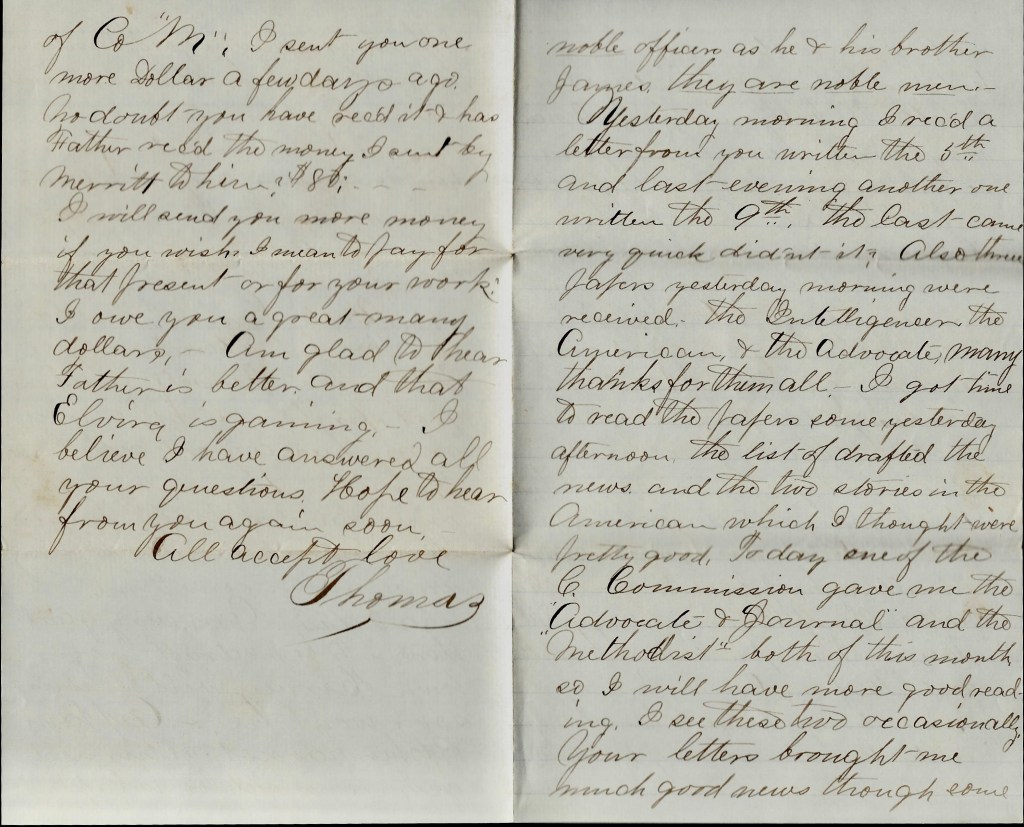 of Co "M", I sent you one
more Dollar a few days ago.
No doubt you have recd it & has
Father recd the money I sent by
Merritt to him, $80;
I will send you more money
if you wish. I mean to pay for
that present or for your work.
I owe you a great many
dollars, - Am glad to hear
Father is better and that
Elvira is gaining, - I
believe I have answered all
your questions. Hope to hear
from you again soon
All accept love
Thomas
noble officers as he & his brother
James. they are noble men. -
Yesterday morning I recd a
letter from you written the 5th
and last evening another one
written the 9th. The last came
very quick didn't it? Also three
papers yesterday morning were
received. the Intelligencer, the
American, & the Advocate, many
thanks for them all - I got time
to read the papers some yesterday
afternoon, the list of drafted the
news. and the two stories in the
American which I thought were
pretty good. Today one of the
C. Commission gave me the
"Advocate & Journal" and the
"Methodist" both of this month
so I will have more good read-
ing. I see these two occasionally,
Your letters brought me
much good news though some